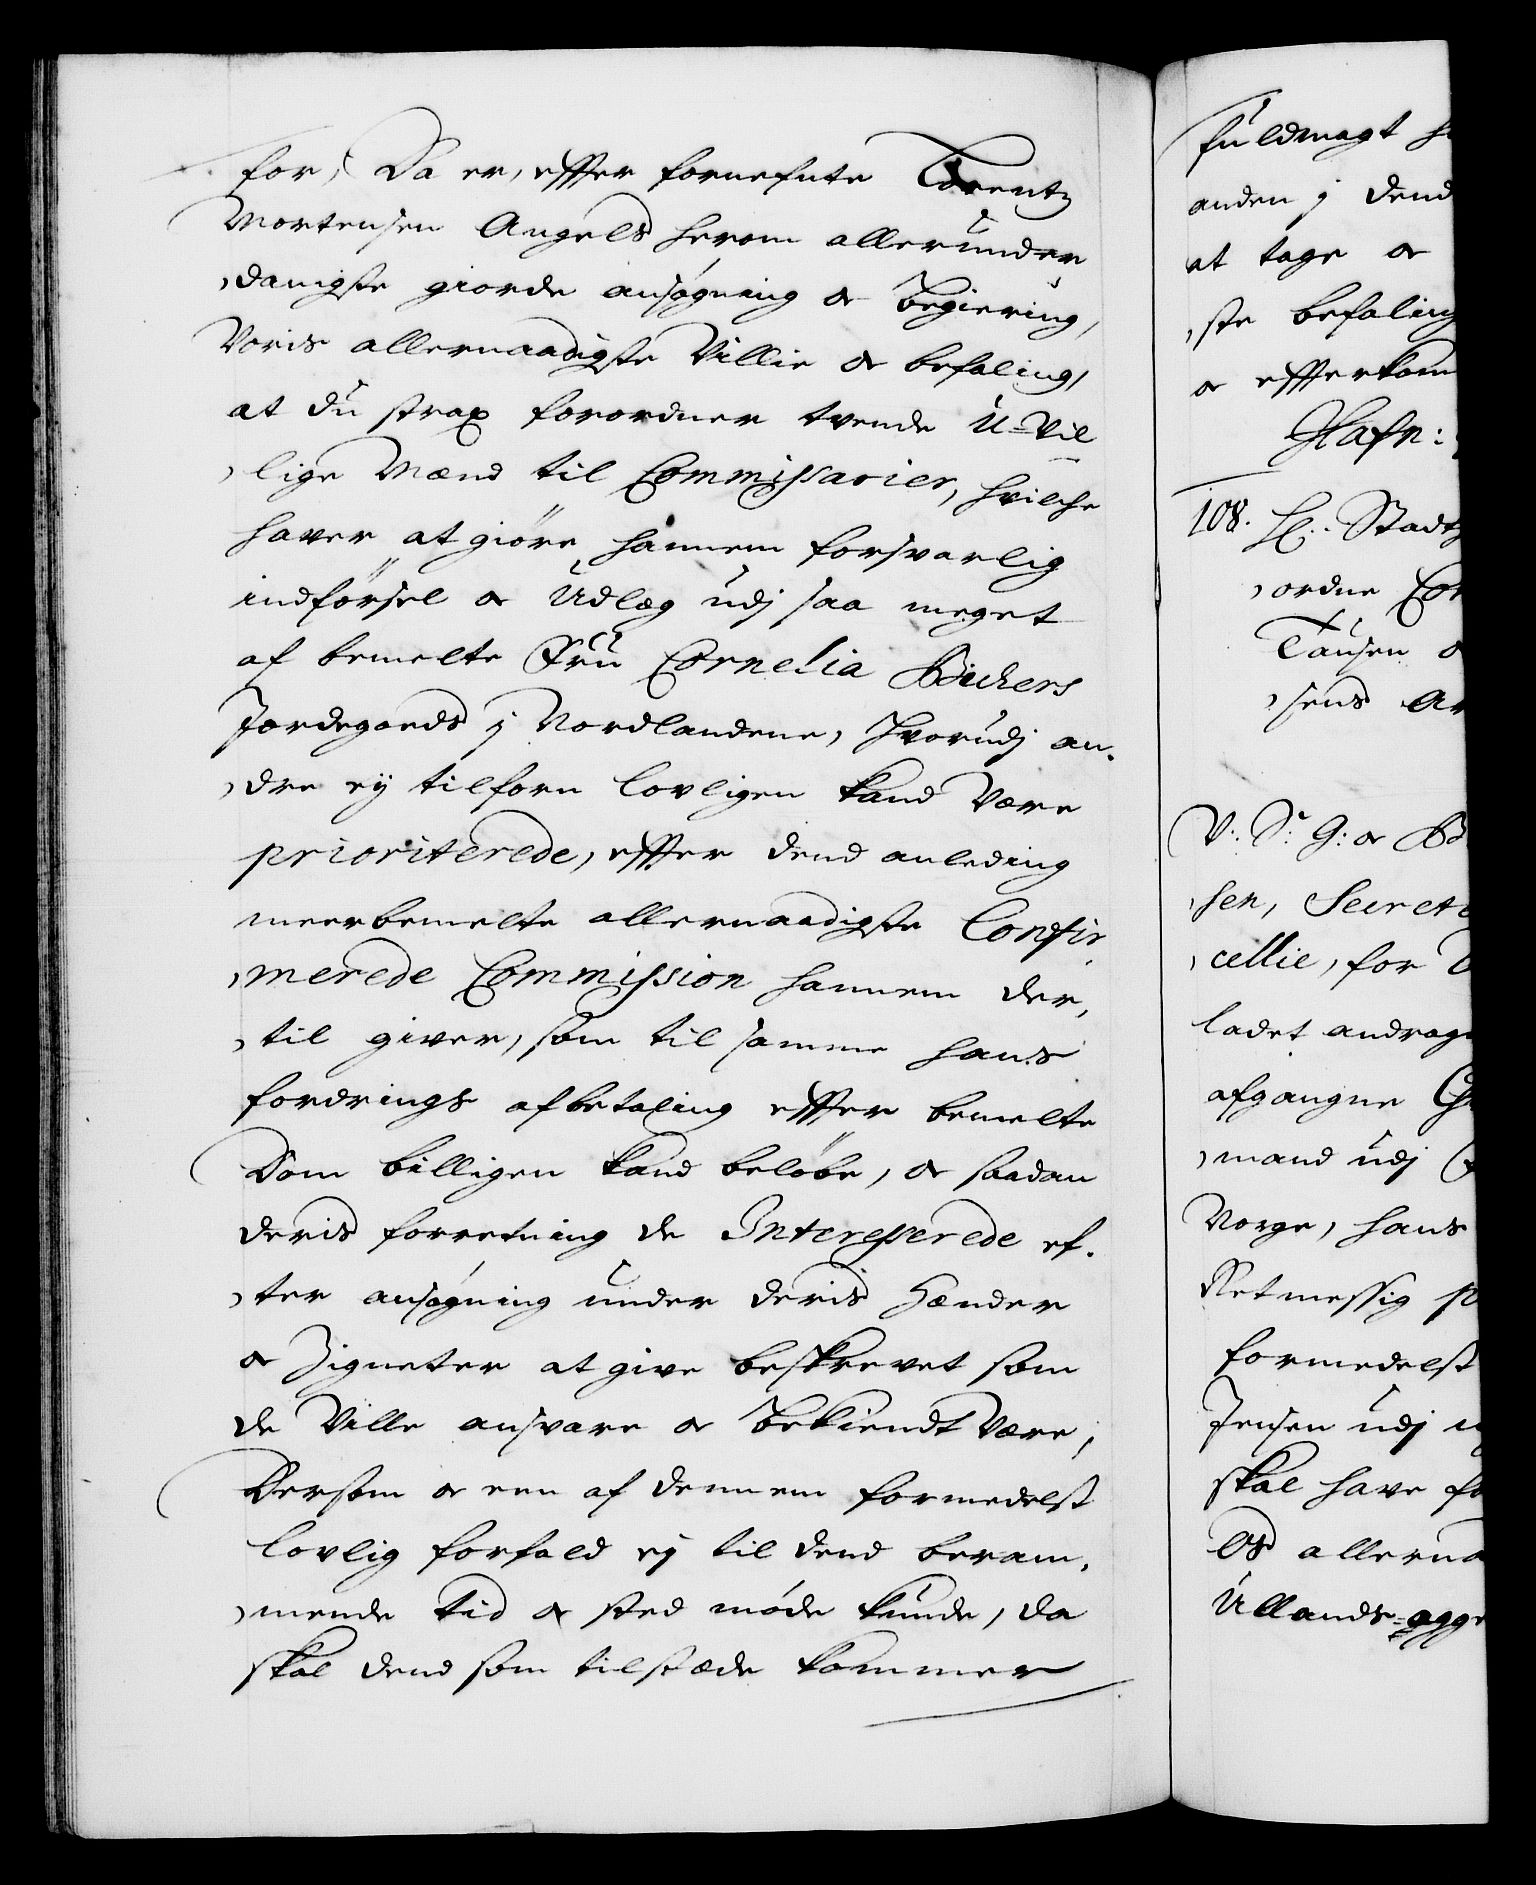 for, Da er, effter fornefnte Lorentz
Mortensen Angels herom allerunder
danigste giorde ansøgning oc Begiering,
Voris allernaadigste Villie oc befaling,
at du strax forordner tvende U-Vil
lige Mænd til Commissarier, hvilche
haver at giöre hannem forsvarlig
indförsel oc Udlæg udj saa meget
af bemelte Fru Cornelia Bichers
Jordegoeds j Nordlandene, Hvorudj an
dre ey tilforn lovligen kand være
prioriterede, effter dend anleding
meerbemelte allernaadigste Confir
merede Commission hannem der
til giver, som til samme hans
fordrings afbetaling effter bemelte
Dom billigen kand belöbe, oc saadan
deris forretning de Interesserede ef
ter ansøgning under deris Hænder
oc Zigneter at give beskrevet som
de Ville ansvare oc bekiendt være,
Dersom oc een af dennem formedelst
lovlig forfald ey til dend beram
mende tid oc sted möde kunde, da
skal dend som tilstæde kommer
fuldmagt
anden j dend
at tage oc
ste befaling
oc effterkom
Hafn:
108. H: Stadt
ordne Com
Tausen
sens
V: S: G: oc
sen, Secret
cellie, for
ladet andrage
afgangne
mand udj
Norge, hans
Retmessig
formedelst
Jensen udj
skal have
Os allerna
Ullands-agge